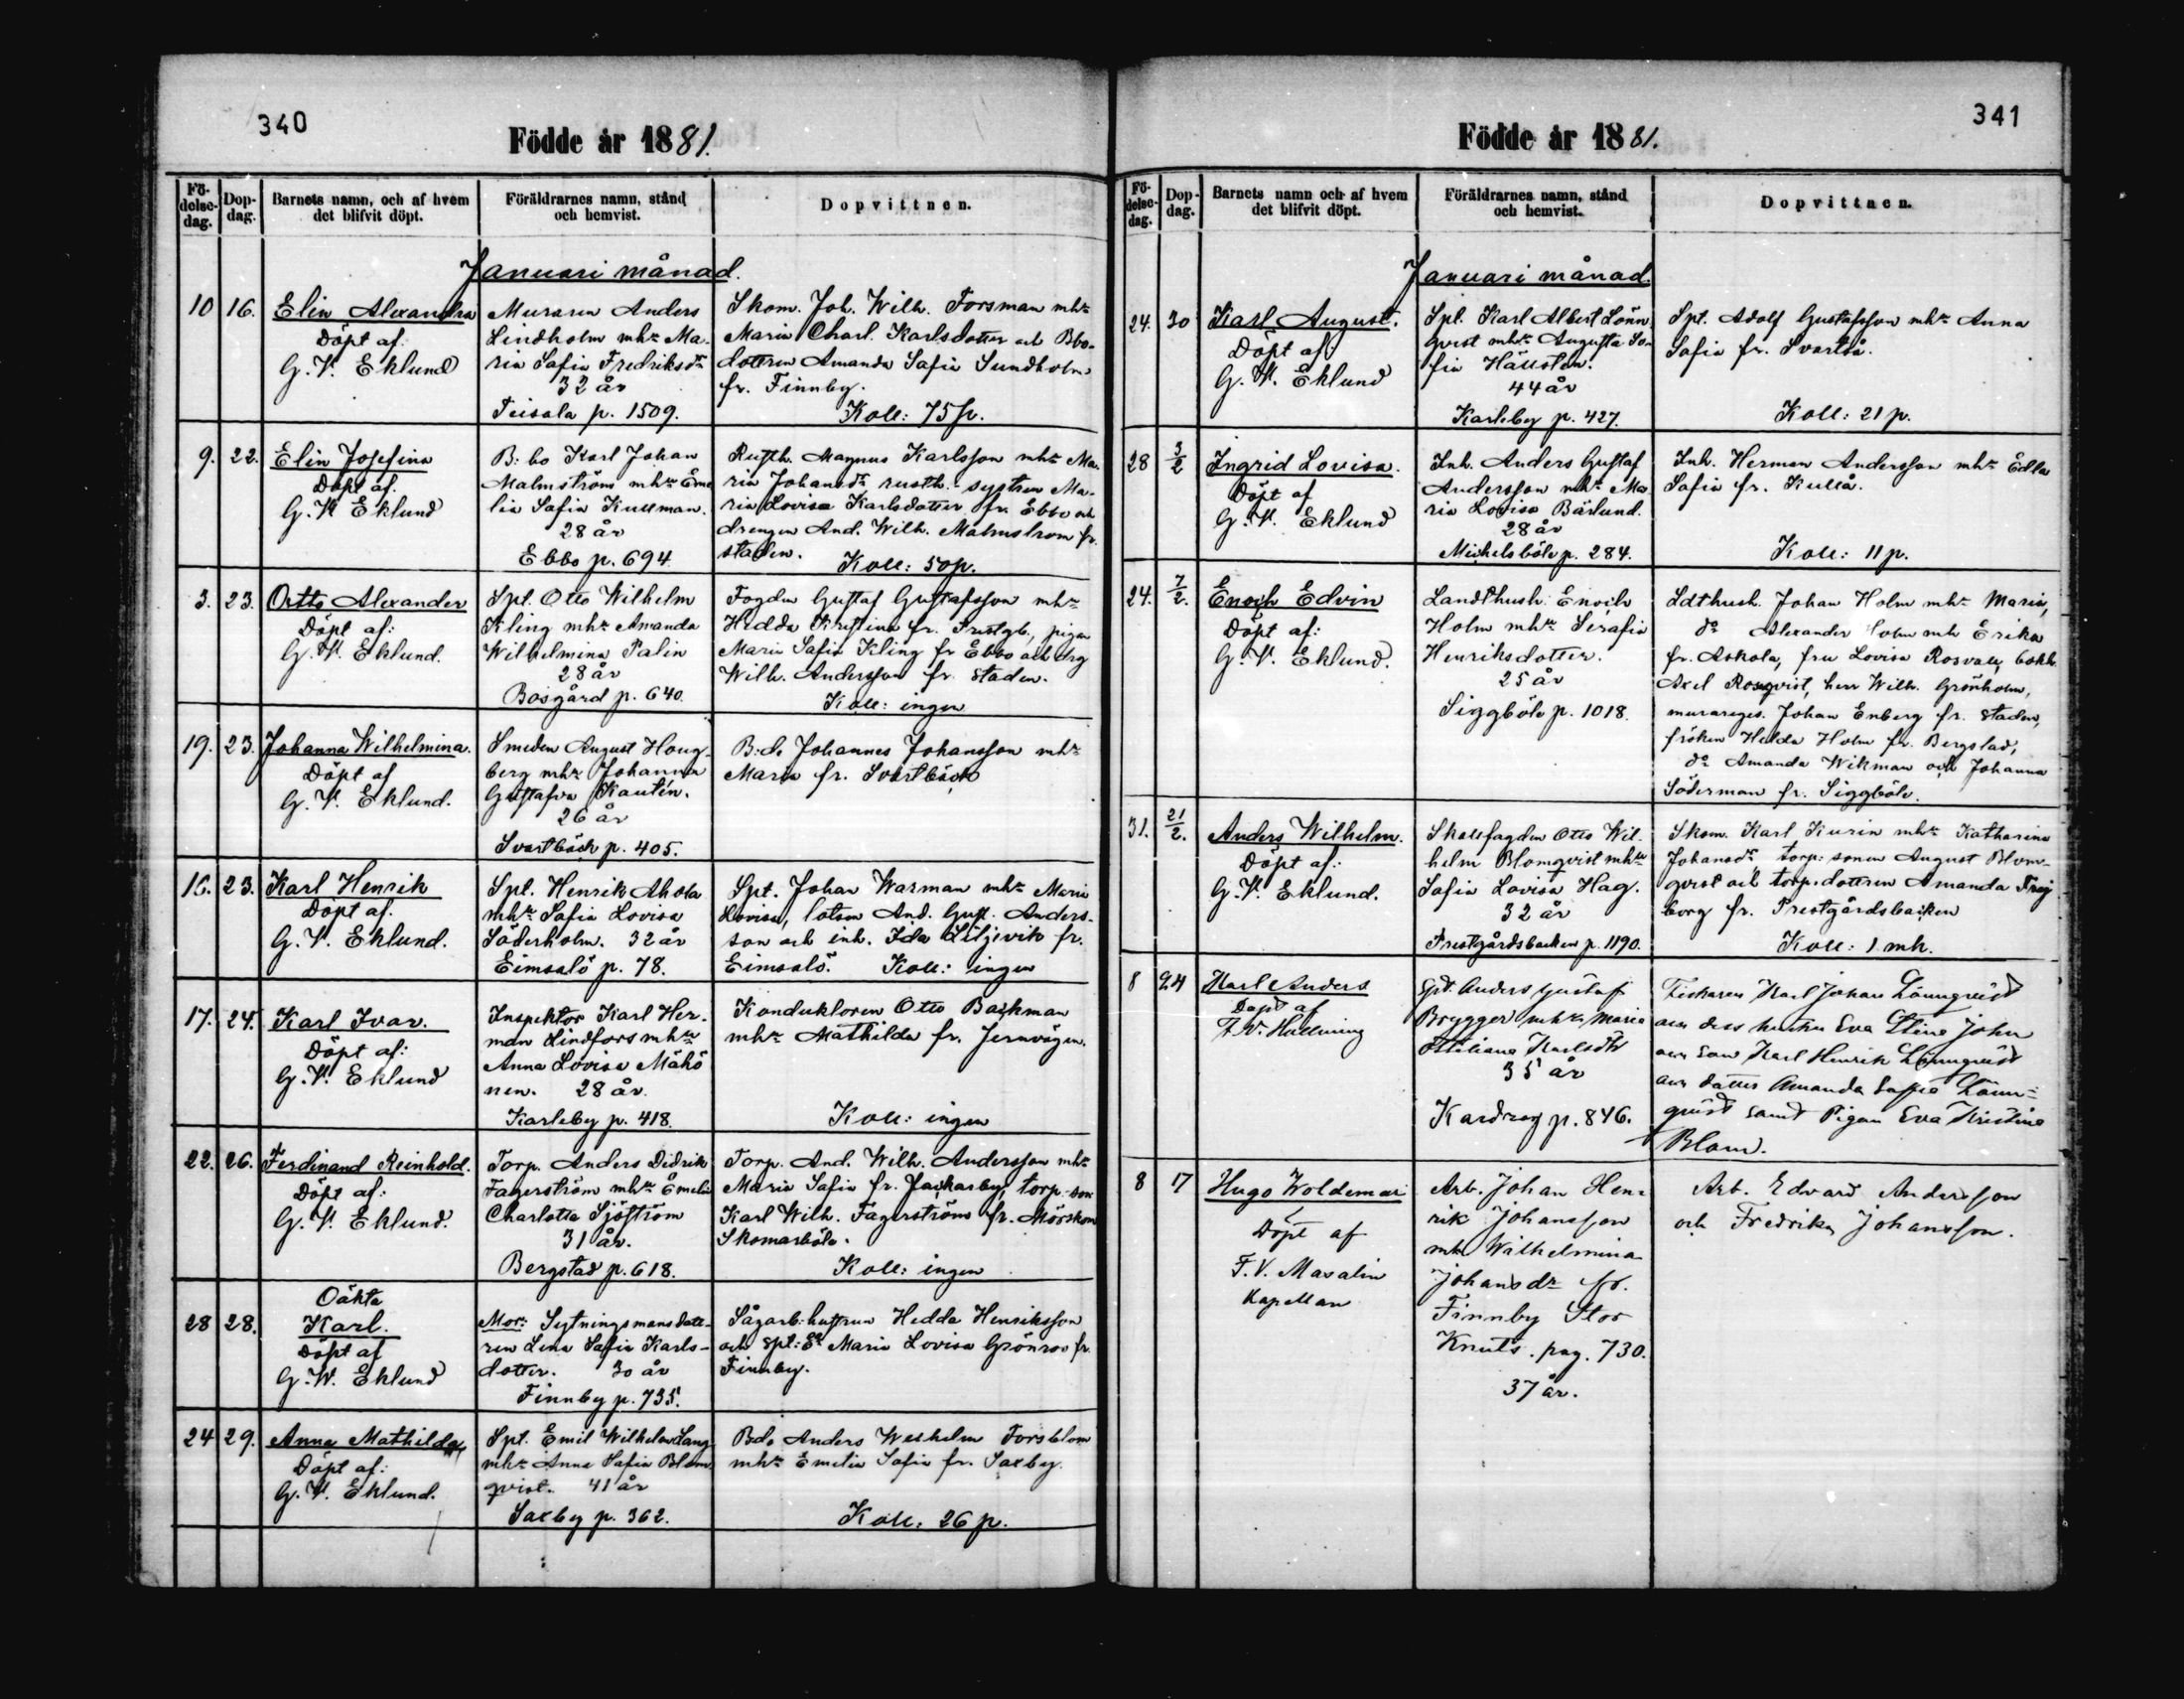 340
Födde år 1881.
Födelsedag.
Dopdag.
Barnets namn, och af hvem det blifvit döpt.
Föräldrarnes namn, stånd och hemvist.
Dopvittnen.
Januari månad.
10
16.
Elin Alexandra
Döpt af:
G. V. Eklund
Muraren Anders
Lindholm mhu Ma-
ria Sofia Fredriksdr
32 år
Teisala p. 1509.
Skom. Joh. Wilh. Forsman mhu
Maria Charl. Karlsdotter och Bbo-
dottren Amanda Sofia Sundholm
fr. Finnby.
Koll: 75 p.
9.
22.
Elin Josefina
Döpt af.
G. V. Eklund
B: bo Karl Johan
Malmström mhu Eme
lia Sofia Kullman.
28 år
Ebbo p. 694.
Rusth. Magnus Karlsson mhu Ma-
ria Johansdr rusth.- systren Ma-
ria Lovisa Karlsdotter fr. Ebbo och
drengen And. Wilh. Malmström fr.
staden.
Koll: 50 p.
3.
23.
Otto Alexander
Döpt af:
G. V. Eklund.
Spt. Otto Wilhelm
Kling mhu Amanda
Wilhelmina Palin
28 år
Bosgård p. 640.
Fogden Gustaf Gustafsson mhu
Hedda Kristina fr. Prestgb., pigan
Maria Sofia Kling fr Ebbo och drg
Wilh. Andersson fr. staden.
Koll: ingen
19.
23.
Johanna Wilhelmina.
Döpt af
G. V. Eklund.
Smeden August Houg-
berg mhu Johanna
Gustafva Kautén.
26 år
Svartbäck p. 405.
B:de Johannes Johansson mhu
Maria fr. Svartbäck
16.
23.
Karl Henrik
Döpt af.
G. V. Eklund.
Spt. Henrik Ahola
mhu Sofia Lovisa
Söderholm. 32 år
Eimsalö p. 78.
Spt. Johan Warman mhu Maria
Lovisa, lotsen And. Gust. Anders-
son och inh. Ida Liljevik fr.
Eimsalö. Koll: ingen
17.
24.
Karl Ivar.
Döpt af:
G. V. Eklund
Inspektor Karl Her-
man Lindfors mhu
Anna Lovisa Mähö
nen. 28 år.
Karleby p. 418.
Konduktoren Otto Backman
mhu Mathilda fr. Jernvägen.
Koll: ingen
22.
26.
Ferdinand Reinhold.
Döpt af:
G. V. Eklund.
Torp. Anders Didrik
Fagerström mhu Emelie
Charlotta Sjöström
31 år.
Bergstad p. 618.
Torp. And. Wilh. Andersson mhu
Maria Sofia fr. Jackarby, torp-son
Karl Wilh. Fagerström fr. Mörskom
Skomarböle.
Koll: ingen
28
28.
Oäkta
Karl.
Döpt af
G. W. Eklund
Mor: Sytningsmansdott-
ren Lena Sofia Karls-
dotter. 30 år
Finnby p. 735.
Sågarb. hustrun Hedda Henriksson
och Spt: Ea Maria Lovisa Grönroos fr.
Finnby.
24
29.
Anna Mathilda
Döpt af:
G. V. Eklund.
Spt. Emil Wilhelm Lang
mhu Anna Sofia Blom-
qvist. 41 år
Saxby p. 362.
Bde Anders Weshelm Forsblom
mhu Emelia Sofia fr. Saxby.
Koll: 26 p.
341
Födde år 1881.
Födelsedag.
Dopdag.
Barnets namn och af hvem det blifvit döpt.
Föräldrarnes namn, stånd och hemvist.
Dopvittnen.
Januari månad.
24.
30
Karl August.
Döpt af
G. V. Eklund
Spt. Karl Albert Lönn
qvist mhu Augusta So-
fia Hällsten.
44 år
Karleby p. 427.
Spt. Adolf Gustafsson mhu Anna
Sofia fr. Svartså.
Koll: 21 p.
28
3/2
Ingrid Lovisa.
Döpt af
G. V. Eklund
Inh. Anders Gustaf
Andersson mhu Ma
ria Lovisa Bärlund.
28 år
Mickelsböle p. 284.
Inh. Herman Andersson mhu Edla
Sofia fr. Kullå.
Koll: 11 p.
24.
7/2.
Enoch Edvin
Döpt af:
G. V. Eklund.
Landthush. Enoch
Holm mhu Serafia
Henriksdotter.
25 år
Siggböle p. 1018.
Ldthush. Johan Holm mhu Maria,
do Alexander Holm mhu Erika
fr. Askola, fru Lovisa Rosvall, bokh.
Axel Rosqvist, herr Wilh. Grönholm,
murareges. Johan Enberg fr. staden,
fröken Hulda Holm fr. Bergstad,
do Amanda Wikman och Johanna
Söderman fr. Siggböle.
31.
21/2.
Anders Wilhelm.
Döpt af:
G. V. Eklund.
Skallfogden Otto Wil-
helm Blomqvist mhu
Sofia Lovisa Hag.
32 år
Prestgårdsbacken p. 1190.
Skom. Karl Kurin mhu Katharina
Johansdr torp: sonen August Blom-
qvist och torp:dottren Amanda Frej
borg fr. Prestgårdsbacken
Koll: 1 mk.
8
24
Karl Anders
Döpt af
F. W. Hallning
Spt. Anders Gustaf
Brygger mhu Maria
Ottiliana Karlsdtr
35 år
Kardrag p. 846.
Fiskaren Karl Johan Lönnqvist
och dess hustru Eva Stina John
och son Karl Henrik Lönnqvist
och dotter Amanda Sofia Lönn-
qvist samt Pigan Eva Kristina
Blom.
8
17
Hugo Woldemar
Döpt af
F. V. Masalin
Kapellan
Arb. Johan Hen-
rik Johansson
mh Wilhelmina
Johansdr fr.
Finnby Stor
Knuts. pag. 730.
37 år.
Arb. Edvard Andersson
och Fredrika Johansson.